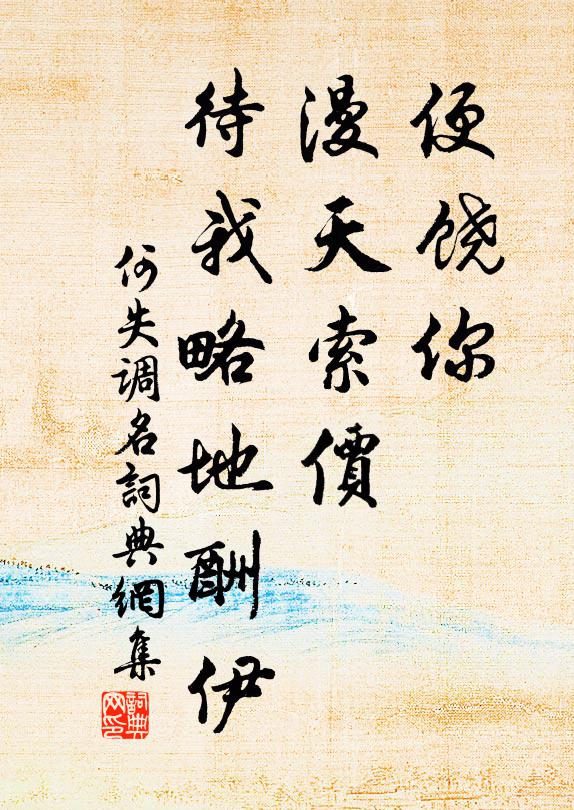 便饶你
漫天索價
待我略地酬伊
何失调名詞典網集
詞典網印